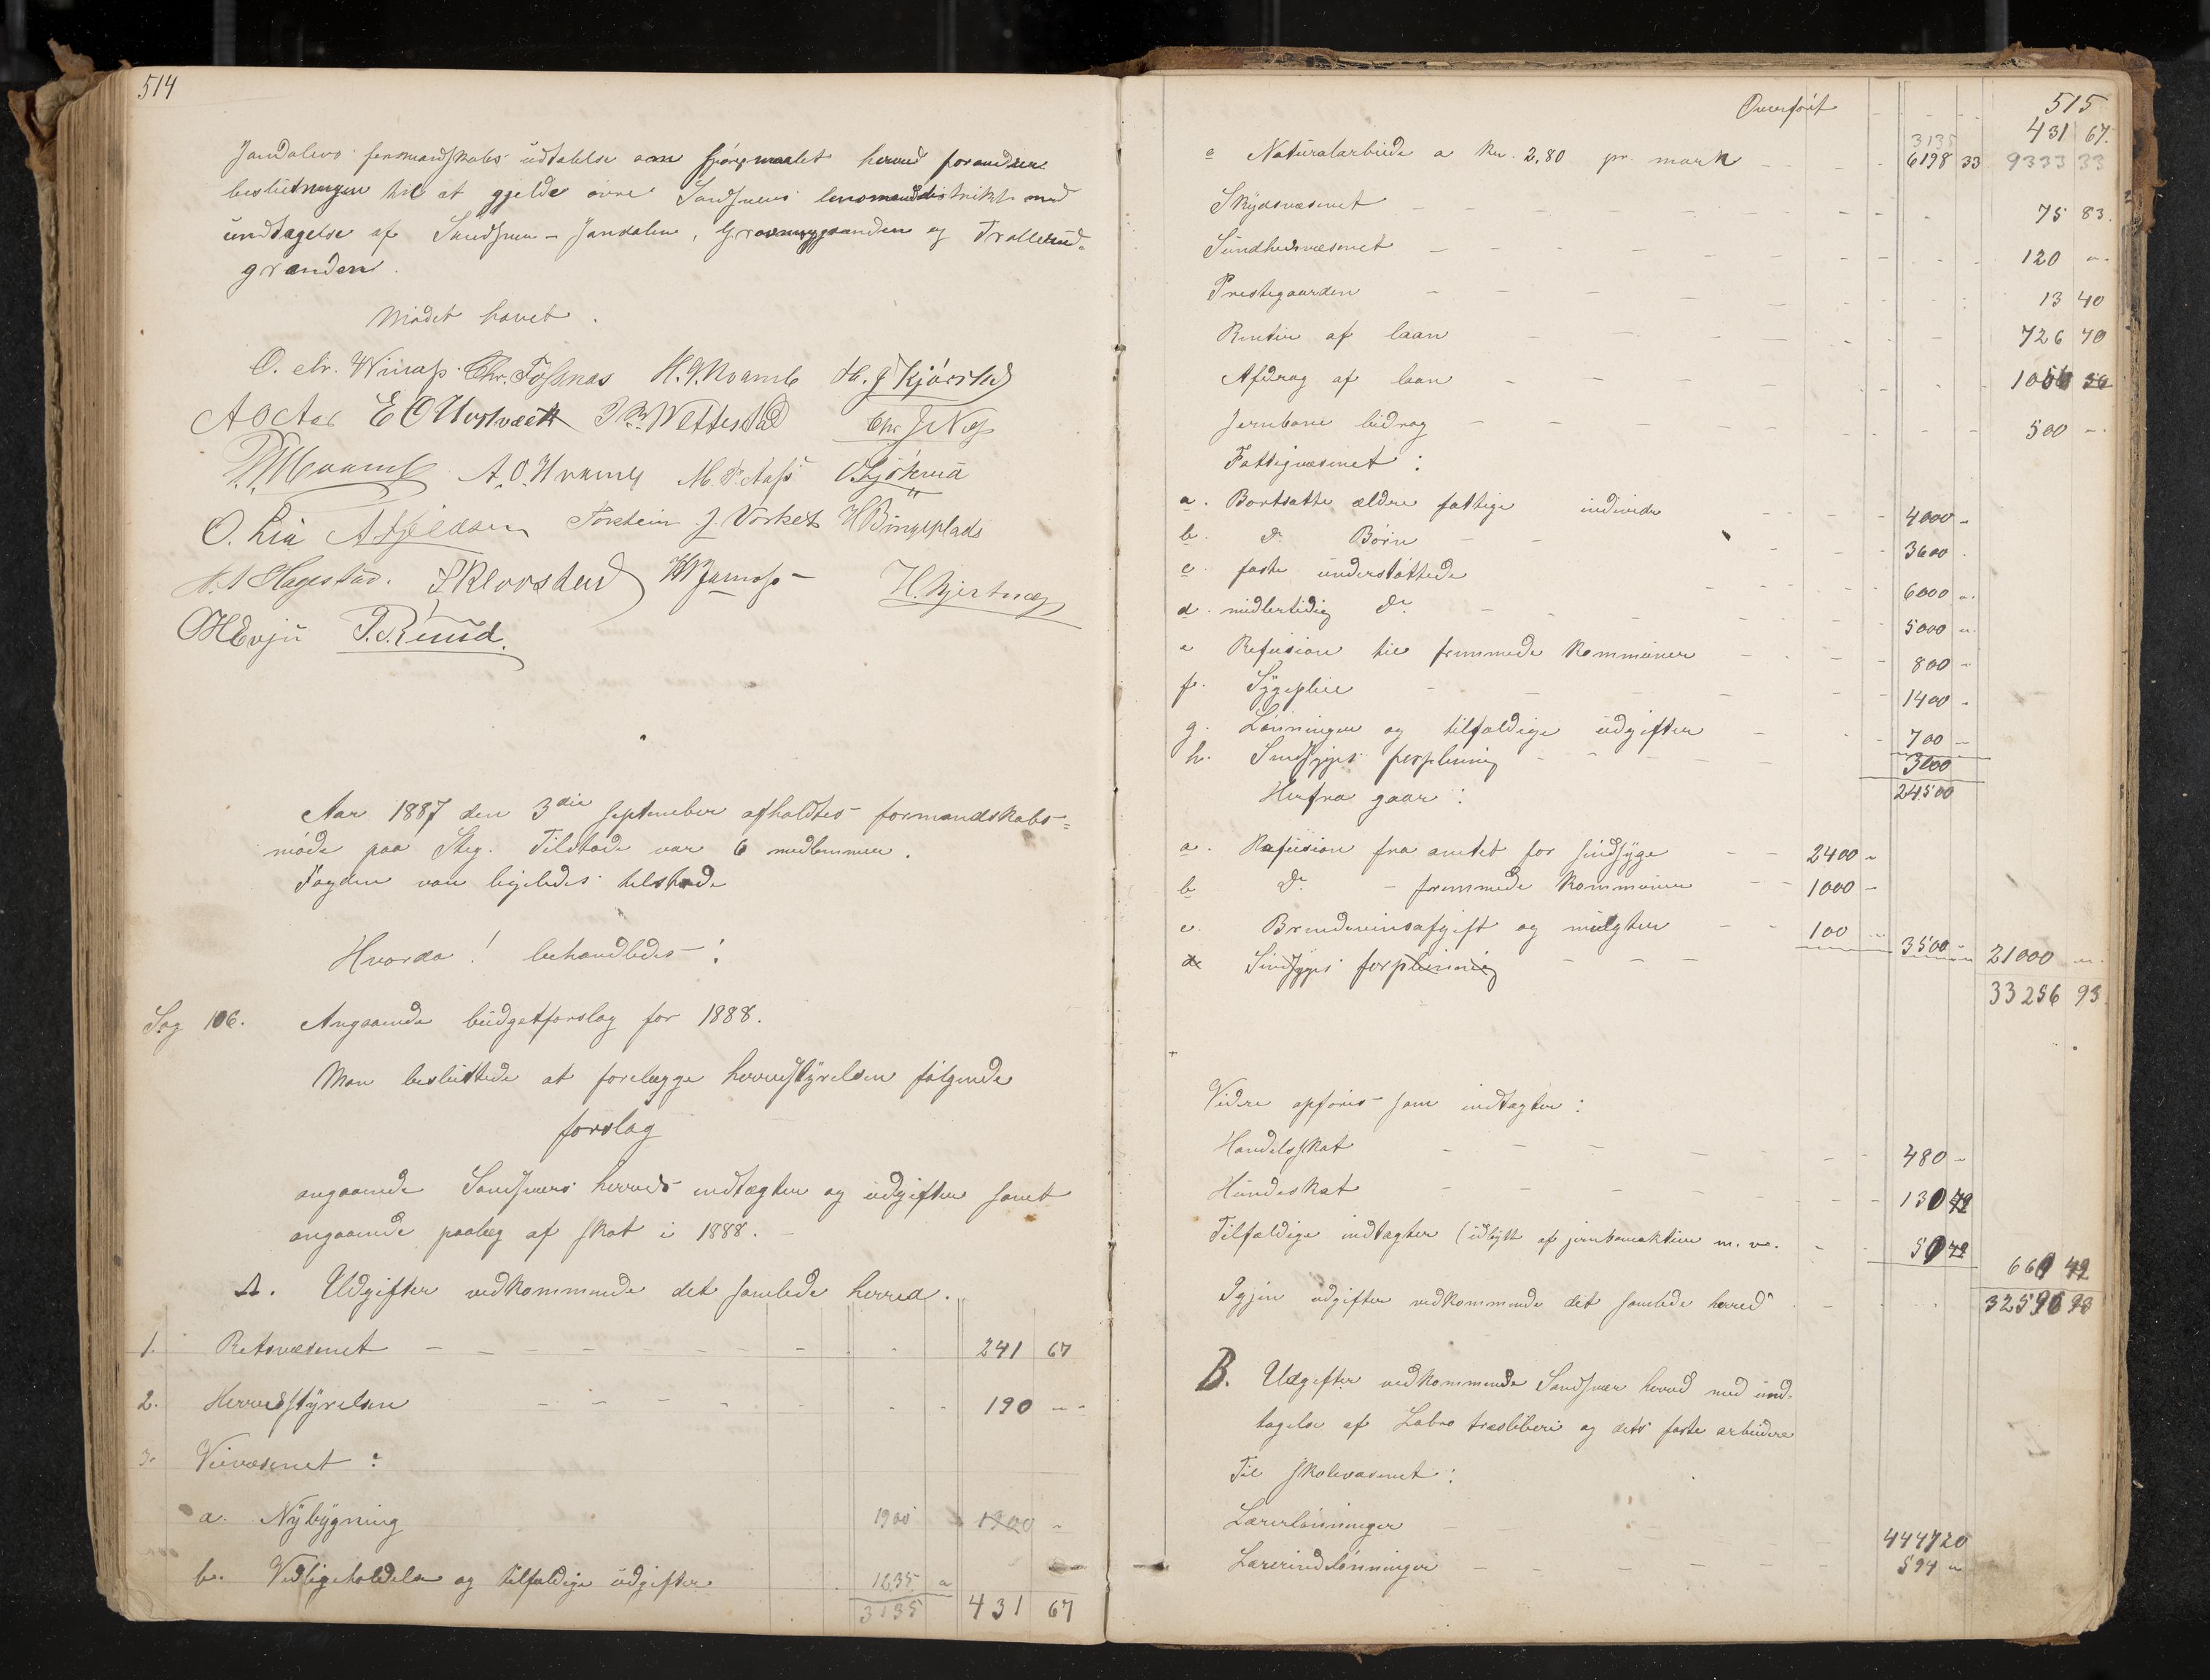 514
Jondalens formandskabs udtalelse om spørgsmaalet herved forandrer
beslutningen til at gjelde øvre Sandsværs lensmandsdistrikt med
undtagelse af Sandsvær - Jondalen, og Trollerud-
grænden.
Mødet hævet.
O. Chr. Chr. Fossnæs H. J. Kjørstad
A O Aas E O P. B. Wettestad Chr. J Næs
A. O. M. P. Aass
O. Lia A Gjeldsen Torstein J. Vorket H Bingeplads
H. A Hagestad. H. Hjertnæs
OHEvju P. T. Ruud.
Aar 1887 den 3die september afholdtes formandskabs-
møde paa Steg. Tilstede var 6 medlemmer.
Fogden var ligeledes tilstede
Hvorda! behandledes:
Sag 106. Angaaende budgetforslag for 1888.
Man besluttede at forelægge herredstyrelsen følgende
forslag
angaaende Sandsværs herreds indtægter og udgifter samt
angaaende paalæg af skat i 1888.
A. Udgifter vedkommende det samlede herred.
1. Retsvæsenet 241 67
2. Herredstyrelsen 190 -
3. Veivæsenet:
a. Nybygning 1900 1900 -
b. Vedligeholdelse og tilfældige udgifter 1235
3135 431 67
515
Overført 431 67.
3135
c Naturalarbeide a kr. 2,80 pr. mark 6198 33 9333 33
Skydsvæsenet 75 83.
Sundhedsvæsenet 120 -
Prestegaarden 13 40
Renter af laan 726 70
Afdrag af laan
Jernbane bidrag 500 -
Fattigvæsenet:
a. Bortsatte ældre fattige individer 4000 -
b. Do Børn 3600
c. faste understøttede 6000 -
d. midlertidig Do 5000 -
e Refusion til fremmede kommuner 800 -
f. Sygepleie 1400 -
g. Lønninger og tilfældige udgifter 700 -
h. Sindsyges forpleining 3000
Herfra gaar: 24500
a. Refusion fra amtet for sindsyge 2400 -
b Do - fremmede kommuner 1000 -
c. Brændevinsafgift og mulgter 100 3500 - 21000 -
d Sindsyges forpleining
33256 93
Videre opføres som indtægter:
Handelsskat 480 -
Hundeskat 130
Tilfældige indtægter (udbytte af jernbaneaktier m. v. 50
660
Igjen udgifter vedkommende det samlede herred 32596 93
B. Udgifter vedkommende Sandsvær herred med und-
tagelse af Labro træsliberi og dets faste arbeidere
Til skolevæsenet:
Lærerlønninger 4447 20
Lærerindelønninger 594 -